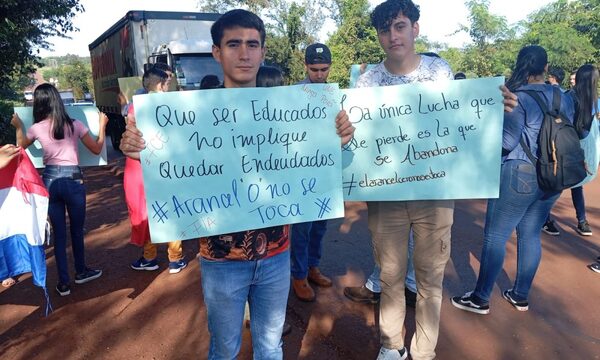 Que ser Educados
no implique
Quedar Endeudados
#Arancel "0" no se
Toca #
La única Lucha que
se pierde es La que
se Abandona
#elarancelceronosetoca